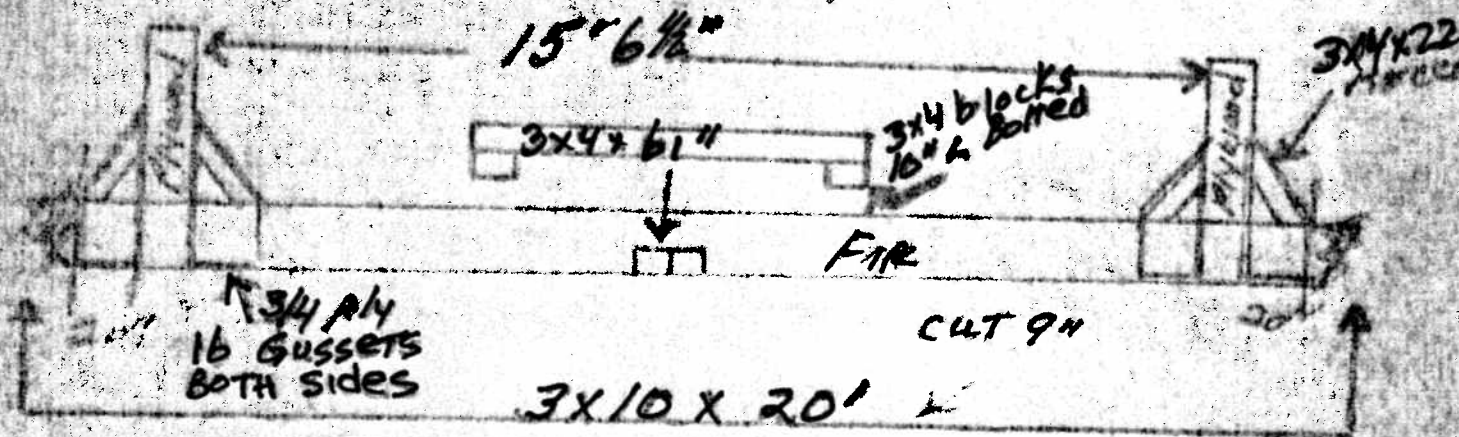 15' 6½"
3x4x22
3x4x61"
3x4 blocks
10" L Bolted
Plywood
Plywood
FIR
3/4 Ply
16 Gussets
BOTH Sides
CUT 9"
20"
3X10 X 20'